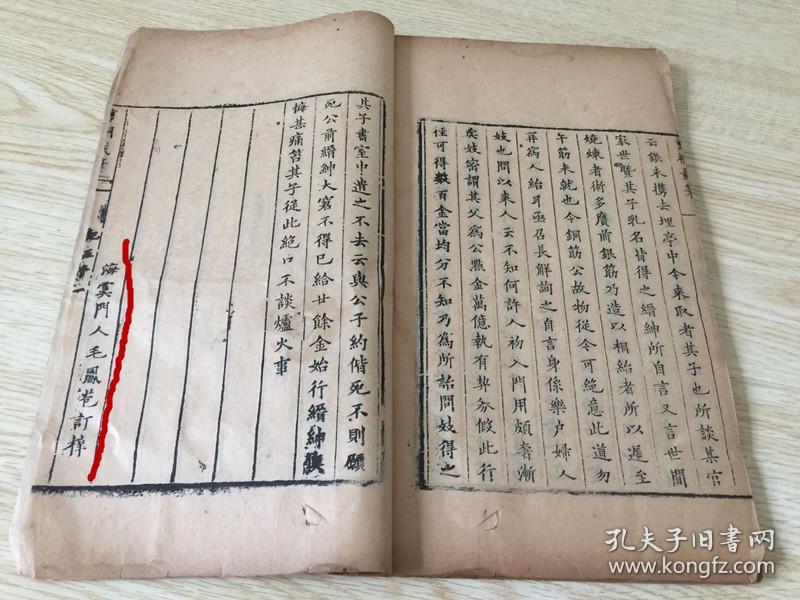 云銀未携去埋亭中令来取者其子也所談某官
家世暨其子乳名皆得之縉紳所自言又言世間
燒煉者術多贋前銀筋乃造以相紿者所以遲至
午筋未就也今銅筋公故物從今可絶意此道勿
再為人紿耳亟召長解詢之自言身係樂户婦人
妓也問以来人云不知何許人初入門用頗奢漸
與妓密謂其父為公㸃金萬億執有券假此行
徑可得數百金當均分不知乃為所詒問妓得之
其子書室中遣之不去云與公子約偕死不則願
死公前縉紳大窘不得已給廿餘金始行縉紳
悔甚痛笞其子從此絶口不談爐火事
海虞門人毛鳳苞訂梓
孔夫子旧书网
www.kongfz.com